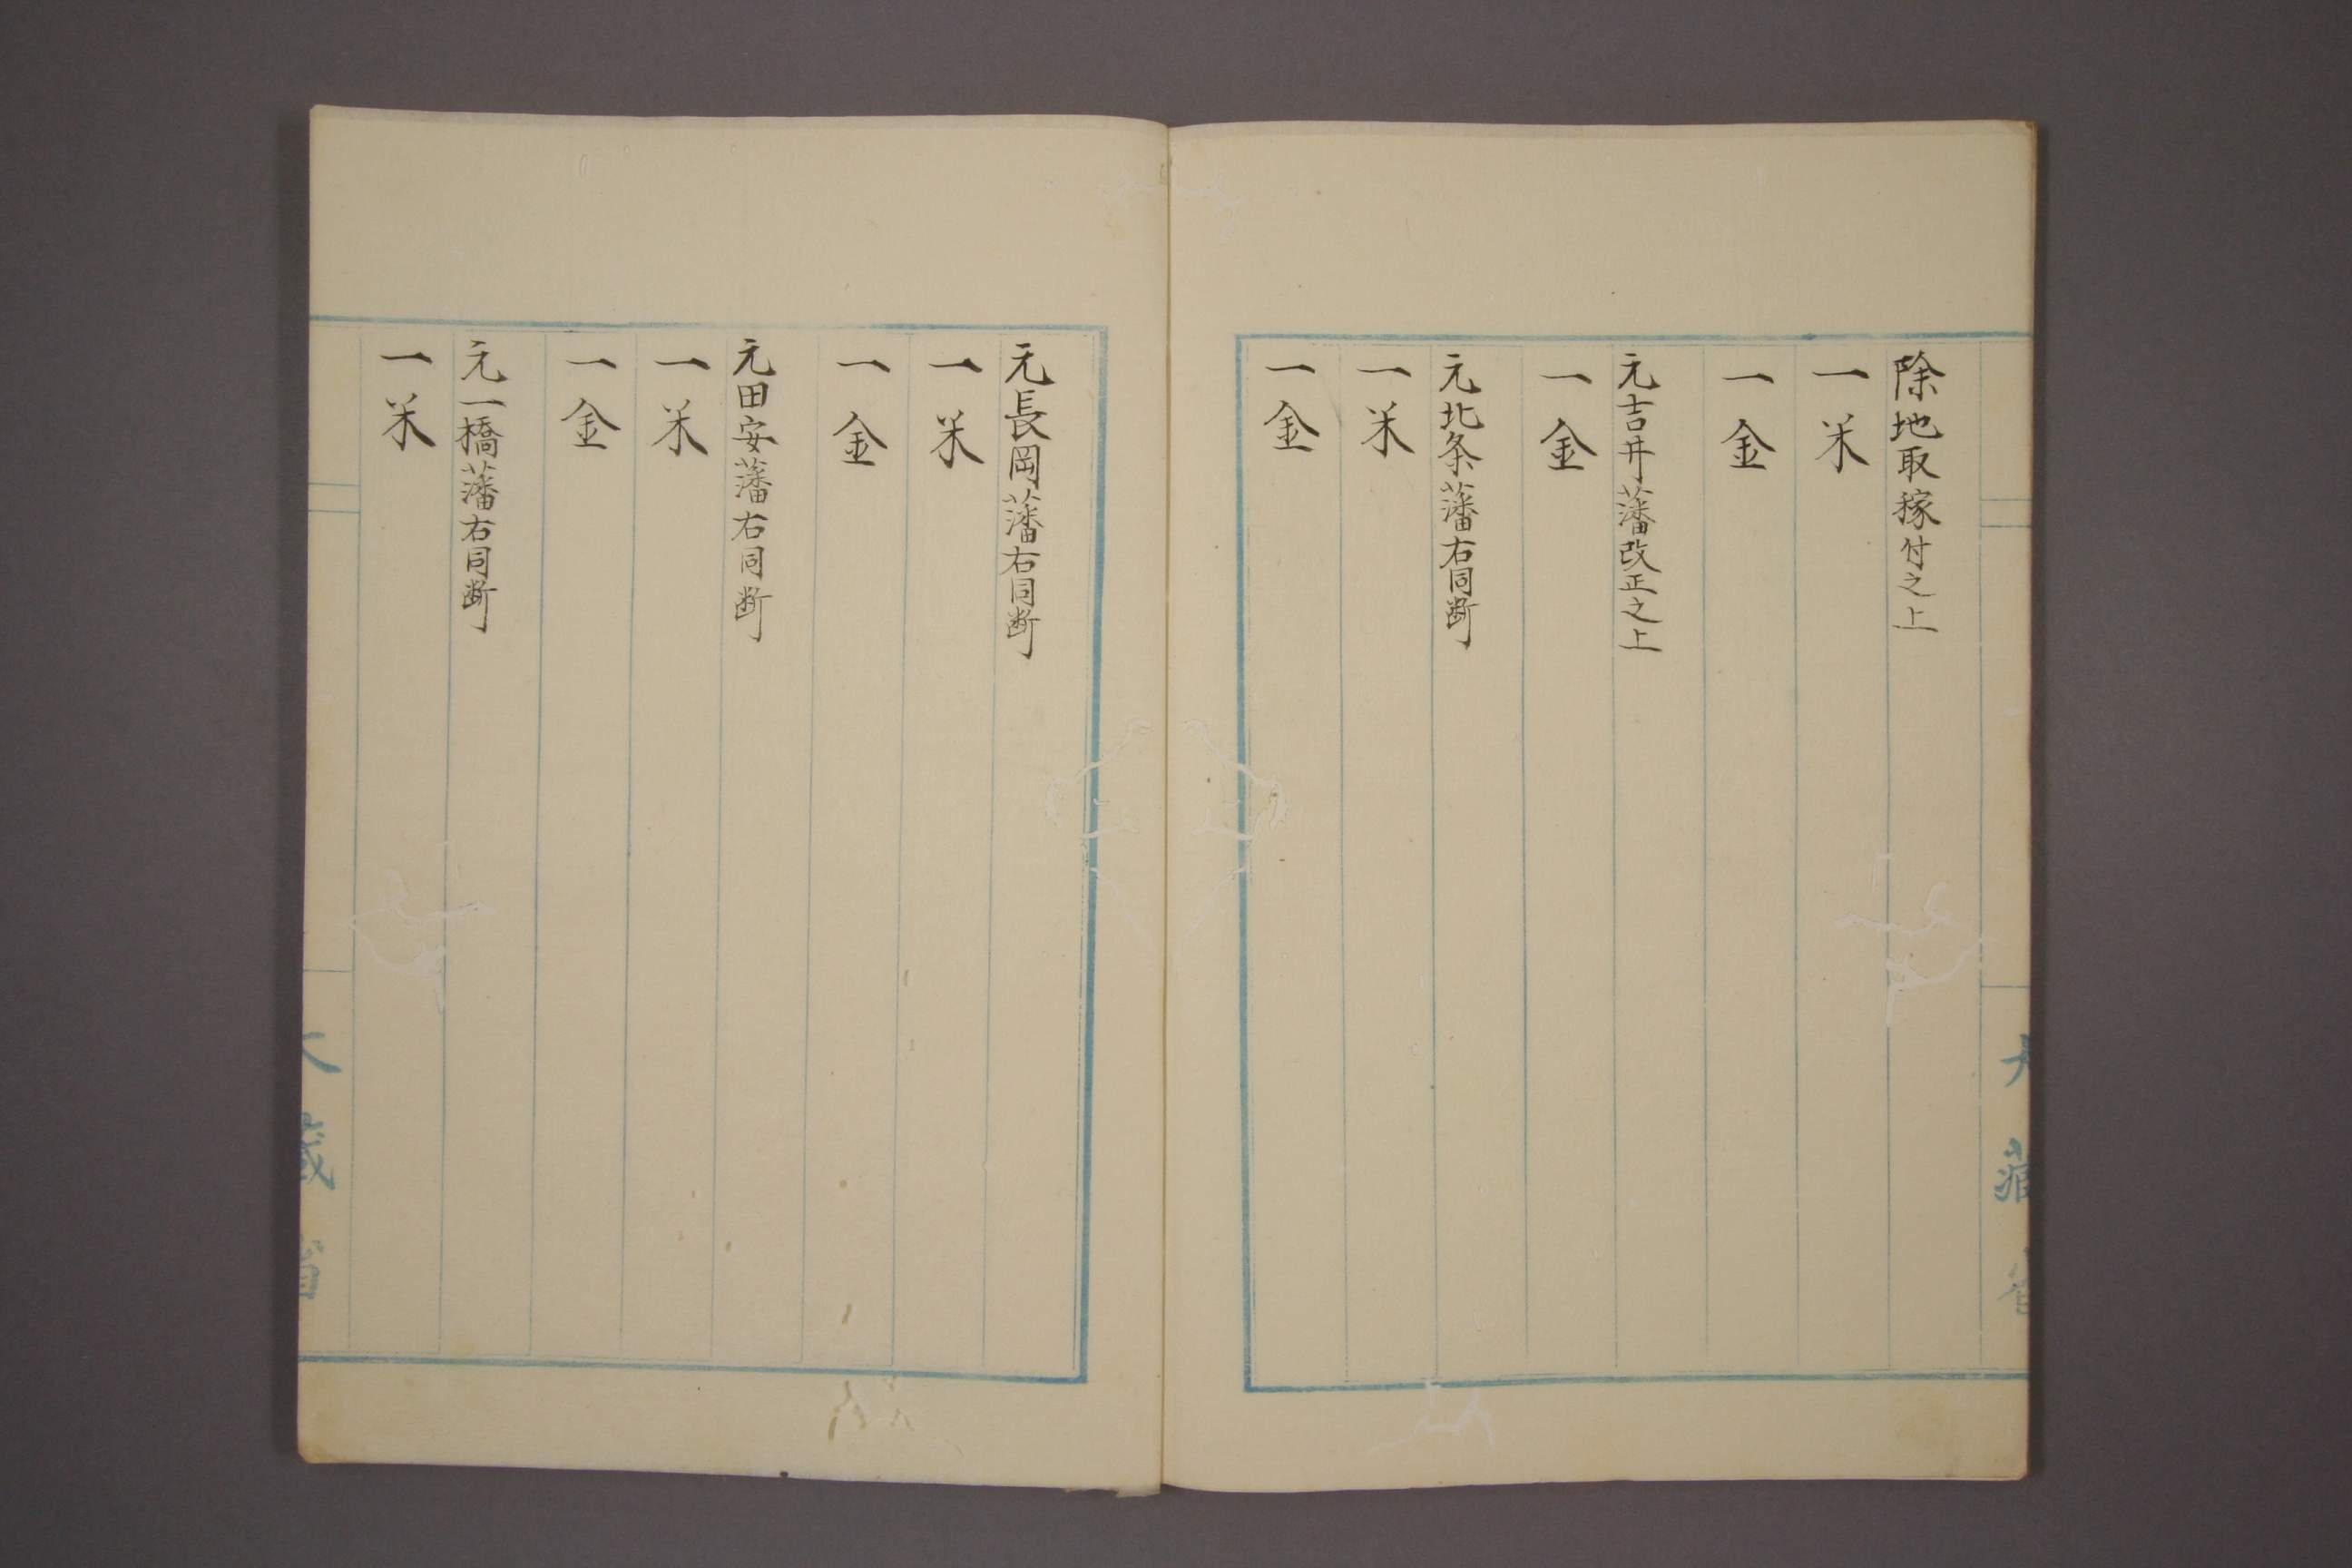 除地取稼付之上
一米
一金
元吉井藩改正之上
一金
元北条藩右同断
一米
一金
元長岡藩右同断
一米
一金
元田安藩右同断
一米
一金
元一橋藩右同断
一米
大藏省